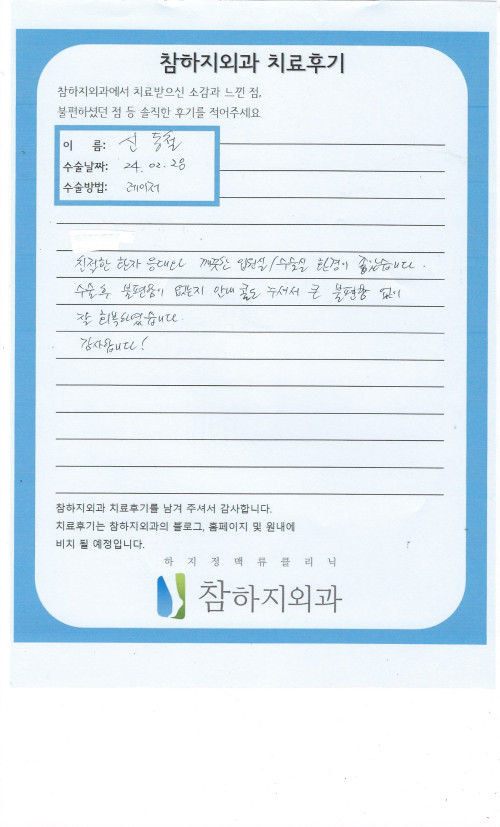 참하지외과 치료후기
참하지외과에서 치료받으신 소감과 느낀 점,
불편하셨던 점 등 솔직한 후기를 적어주세요
이 름: 신동철
수술날짜: 24. 02. 28
수술방법: 레이저
친절한 환자 응대와 깨끗한 입원실/수술실 환경이 좋았습니다.
수술후 불편함이 없는지 안내 콜도 주셔서 큰 불편함 없이
잘 회복하였습니다.
감사합니다!
참하지외과 치료후기를 남겨 주셔서 감사합니다.
치료후기는 참하지외과의 블로그, 홈페이지 및 원내에
비치 될 예정입니다.
하지정맥류클리닉
참하지외과